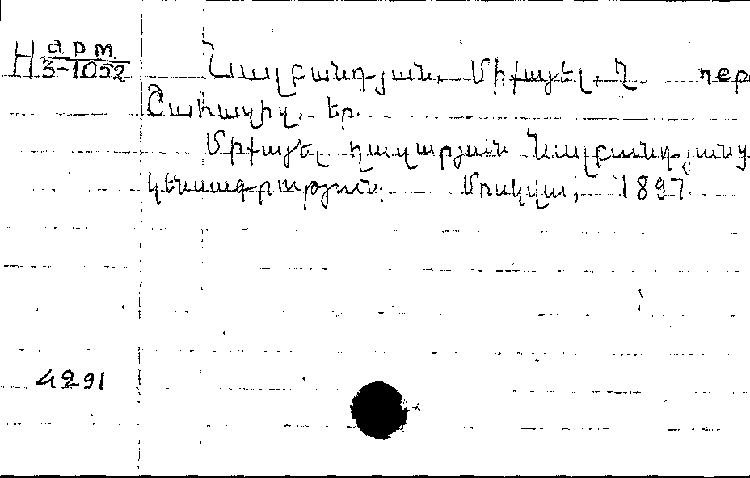 Н арм
3-1052
Նալբանդյան, Միքայել Ղ. пер
Շահազիզ, Եր.
Միքայել Ղազարյան Նալբանդյանց
կենսագրություն. Մոսկվա, 1897
4291